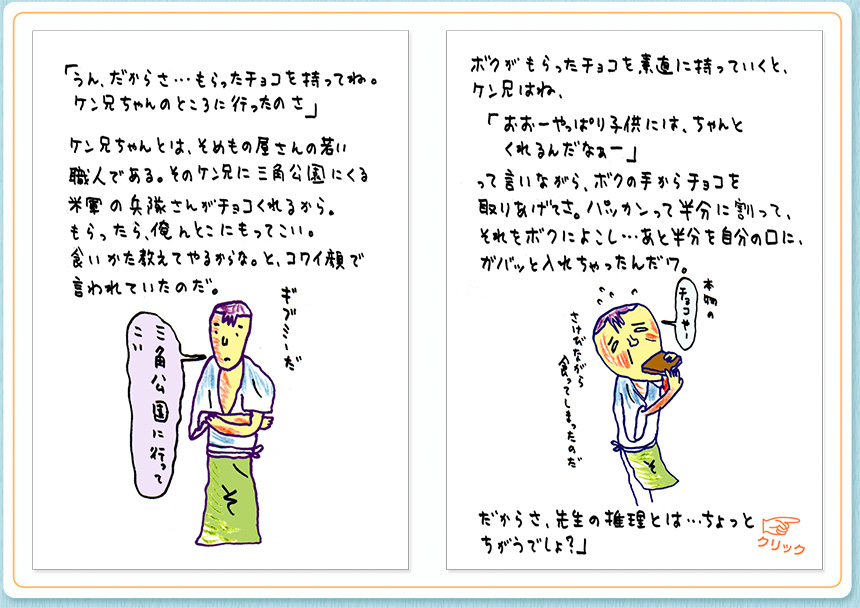 「うん、だからさ…もらったチョコを持ってね。
ケン兄ちゃんのところに行ったのさ」
ケン兄ちゃんとは、そめもの屋さんの若い
職人である。そのケン兄に三角公園にくる
米軍の兵隊さんがチョコくれるから。
もらったら、俺んとこにもってこい。
食いかた教えてやるからな。と、コワイ顔で
言われていたのだ。
ギブミーだ
三角公園に行って
こい
そ
ボクがもらったチョコを素直に持っていくと、
ケン兄はね、
「おおーやっぱり子供には、ちゃんと
くれるんだなぁー」
って言いながら、ボクの手からチョコを
取りあげてさ。パッカンって半分に割って、
それをボクによこし…あと半分を自分の口に、
ガバッと入れちゃったんだワ。
本物の
チョコやー
さけびながら
食ってしまったのだ
そ
だからさ、先生の推理とは…ちょっと
ちがうでしょ?」
クリック